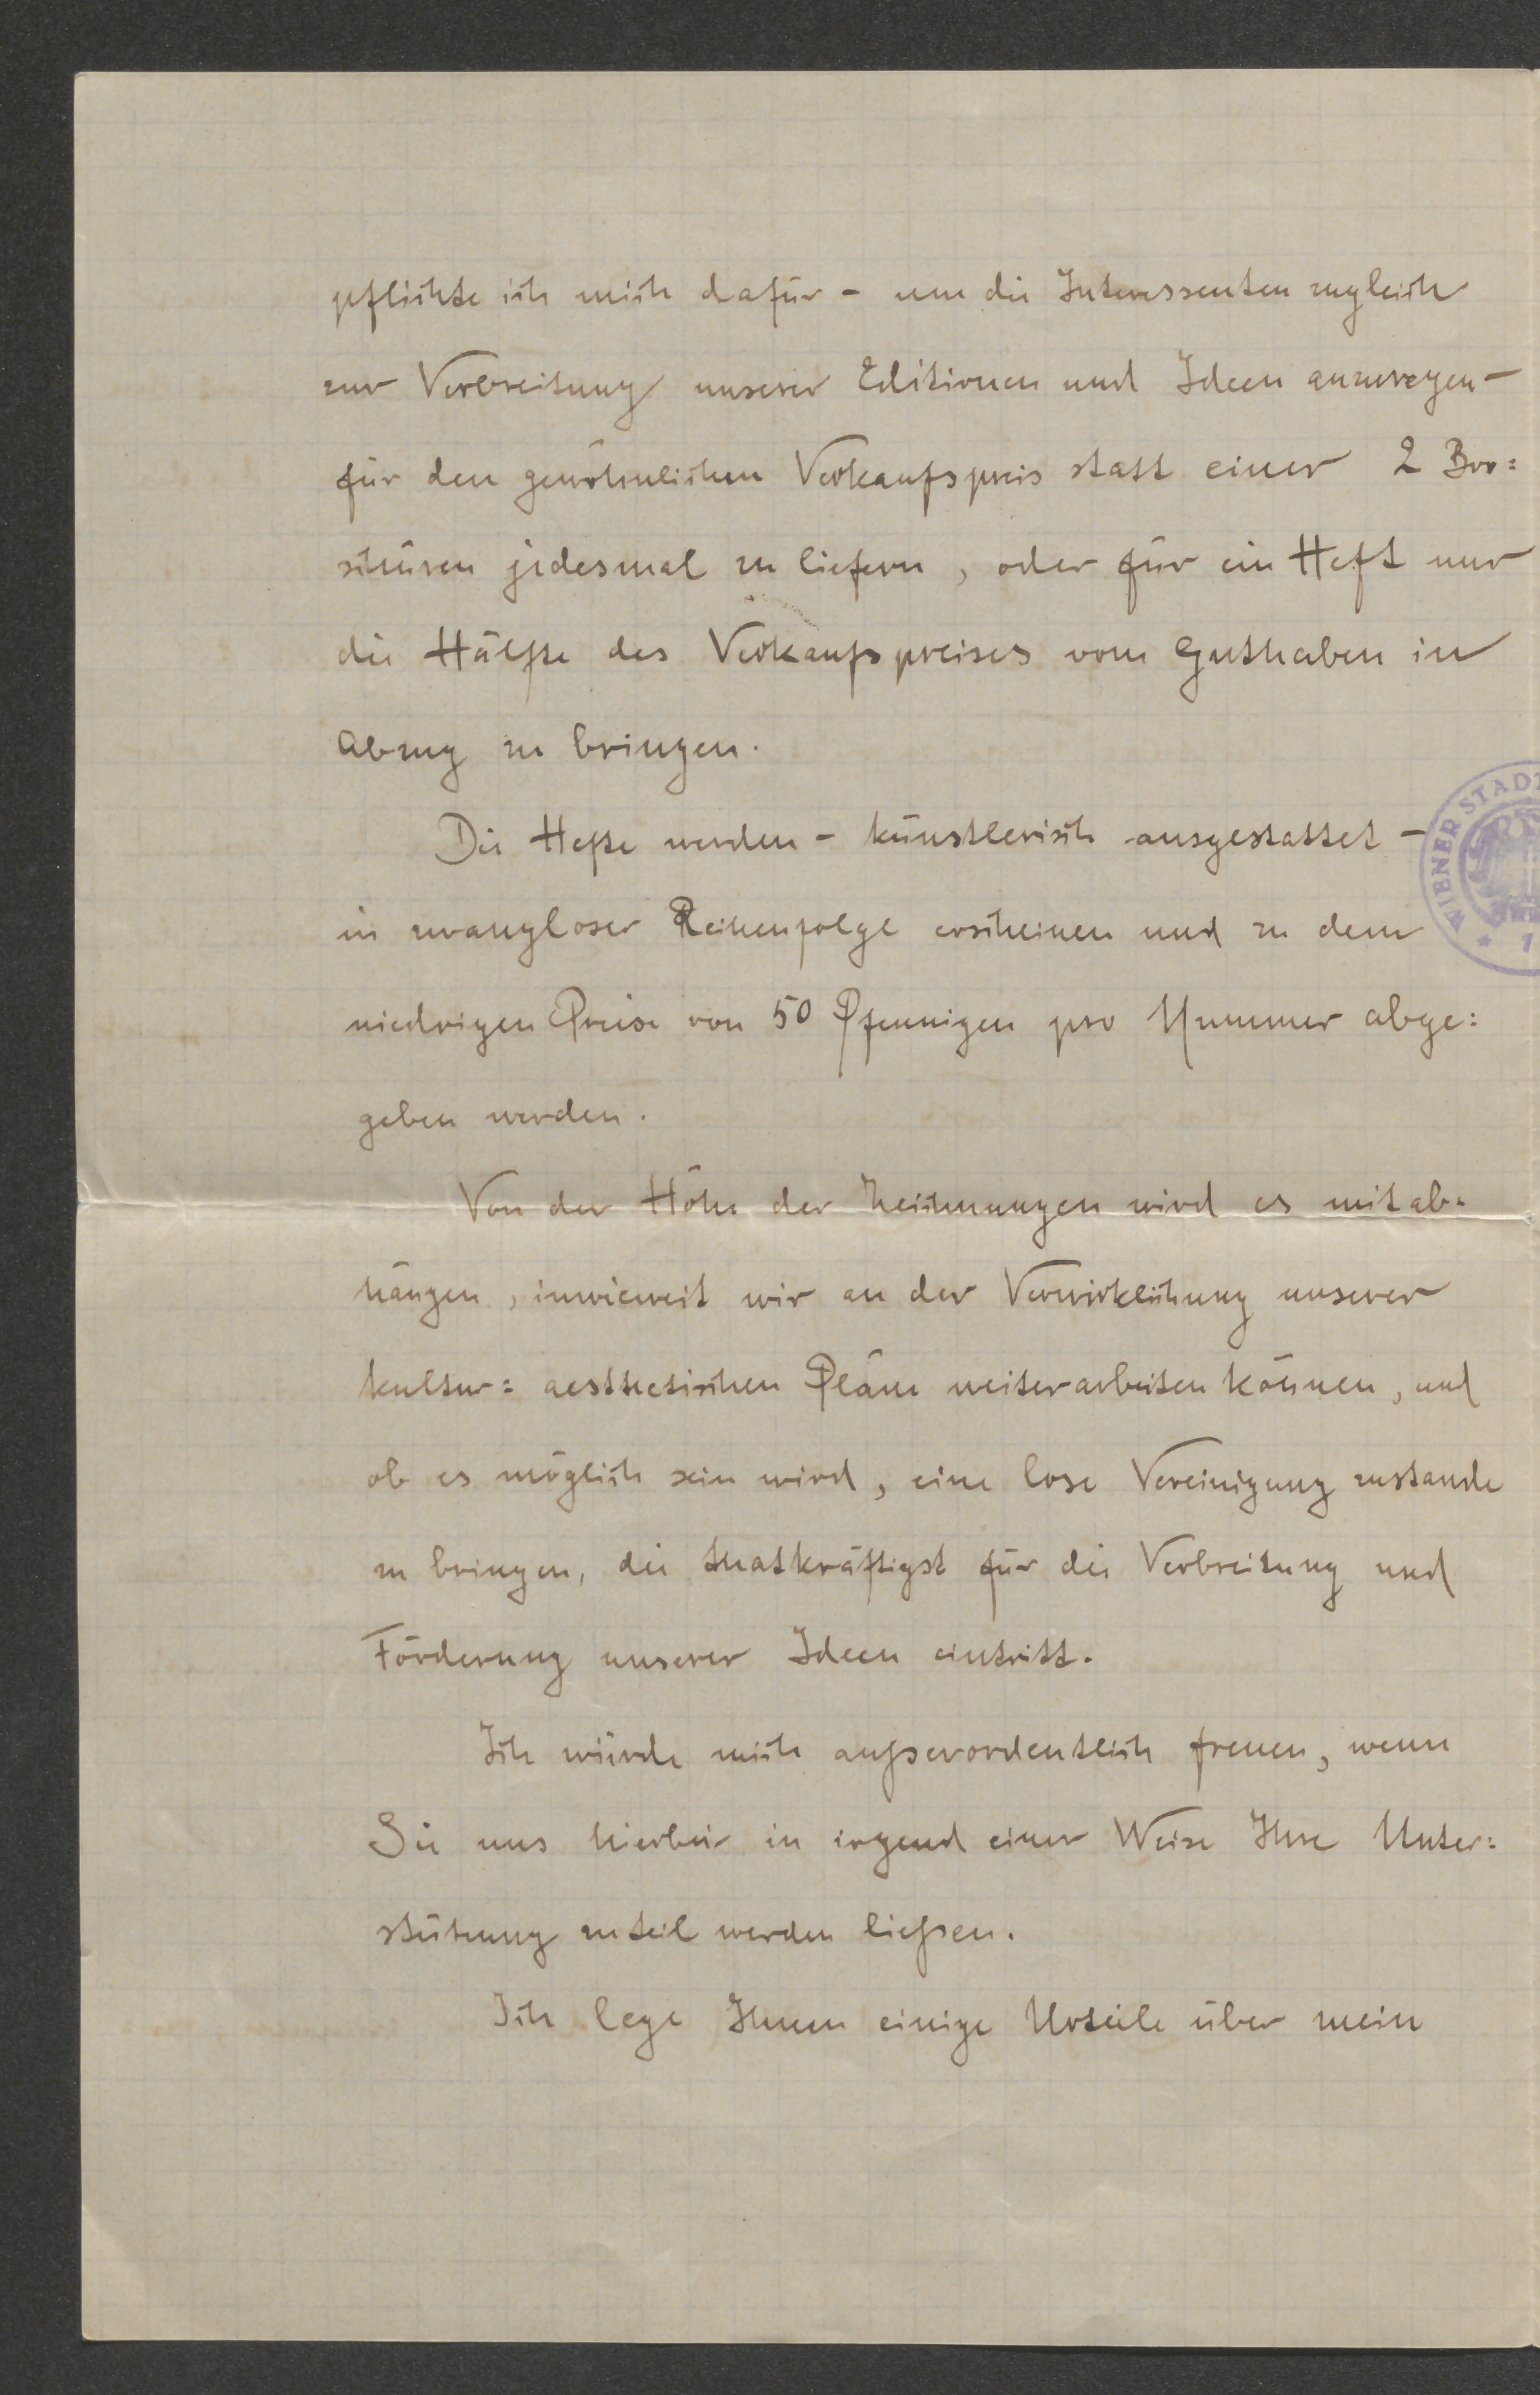 pflichte ich mich dafür – um die Interessenten zugleich
zur Verbreitung unserer Editionen und Ideen anzuregen –
für den gewöhnlichen Verkaufspreis statt einer 2 Bro=
schüren jedesmal zu liefern, oder für ein Heft nur
die Hälfte des Verkaufspreises vom Guthaben in
Abzug zu bringen.
Die Hefte werden – künstlerisch ausgestattet –
in zwangloser Reihenfolge erscheinen und zu dem
niedrigen Preise von 50 Pfennigen pro Nummer abge=
geben werden.
Von der Höhe der Zeichnungen wird es mit ab=
hängen, inwieweit wir an der Verwirklichung unserer
kultur=aesthetischen Pläne weiterarbeiten können, und
ob es möglich sein wird, eine lose Vereinigung zustande
zu bringen, die thatkräftigst für die Verbreitung und
Förderung unserer Ideen eintritt.
Ich würde mich außerordentlich freuen, wenn
Sie uns hierbei in irgend einer Weise Ihre Unter=
stützung zuteil werden ließen.
Ich lege Ihnen einige Urteile über mein
WIENER STAD